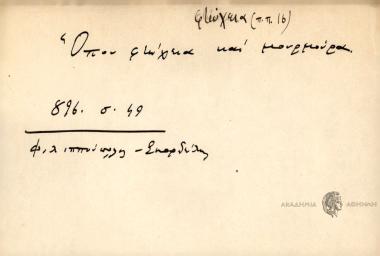 φτώχεια (π.π. 16)
Ὅπου φτώχεια καί μουρμούρα.
896. σ. 49
Φιλιππούπολις - Σκορδέλης
ΑΚΑΔΗΜΙΑ ΑΘΗΝΩΝ